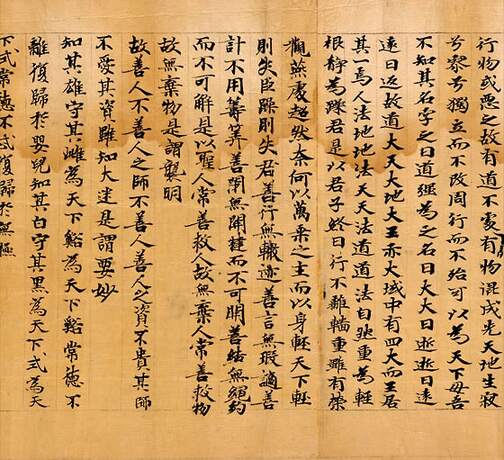 行物或惡之故有道不處有物混成先天地生寂
兮寥兮獨立而不改周行而不殆可以為天下母吾
不知其名字之曰道強為之名曰大大曰逝逝曰遠
遠曰返故道大天大地大王亦大域中有四大而王居
其一焉人法地地法天天法道道法自然重為輕
根静為躁君是以君子終日行不離輜重雖有榮
觀燕處超然奈何以萬乘之主而以身輕天下輕
則失臣躁則失君善行無轍迹善言無瑕適善
計不用籌筭善閇無關揵而不可開善結無繩約
而不可解是以聖人常善救人故無棄人常善救物
故無棄物是謂襲明
故善人不善人之師不善人善人之資不貴其師
不愛其資雖知大迷是謂要妙
知其雄守其雌為天下谿為天下谿常德不
離復歸於嬰兒知其白守其黑為天下式為天
下式常德不忒復歸於無極